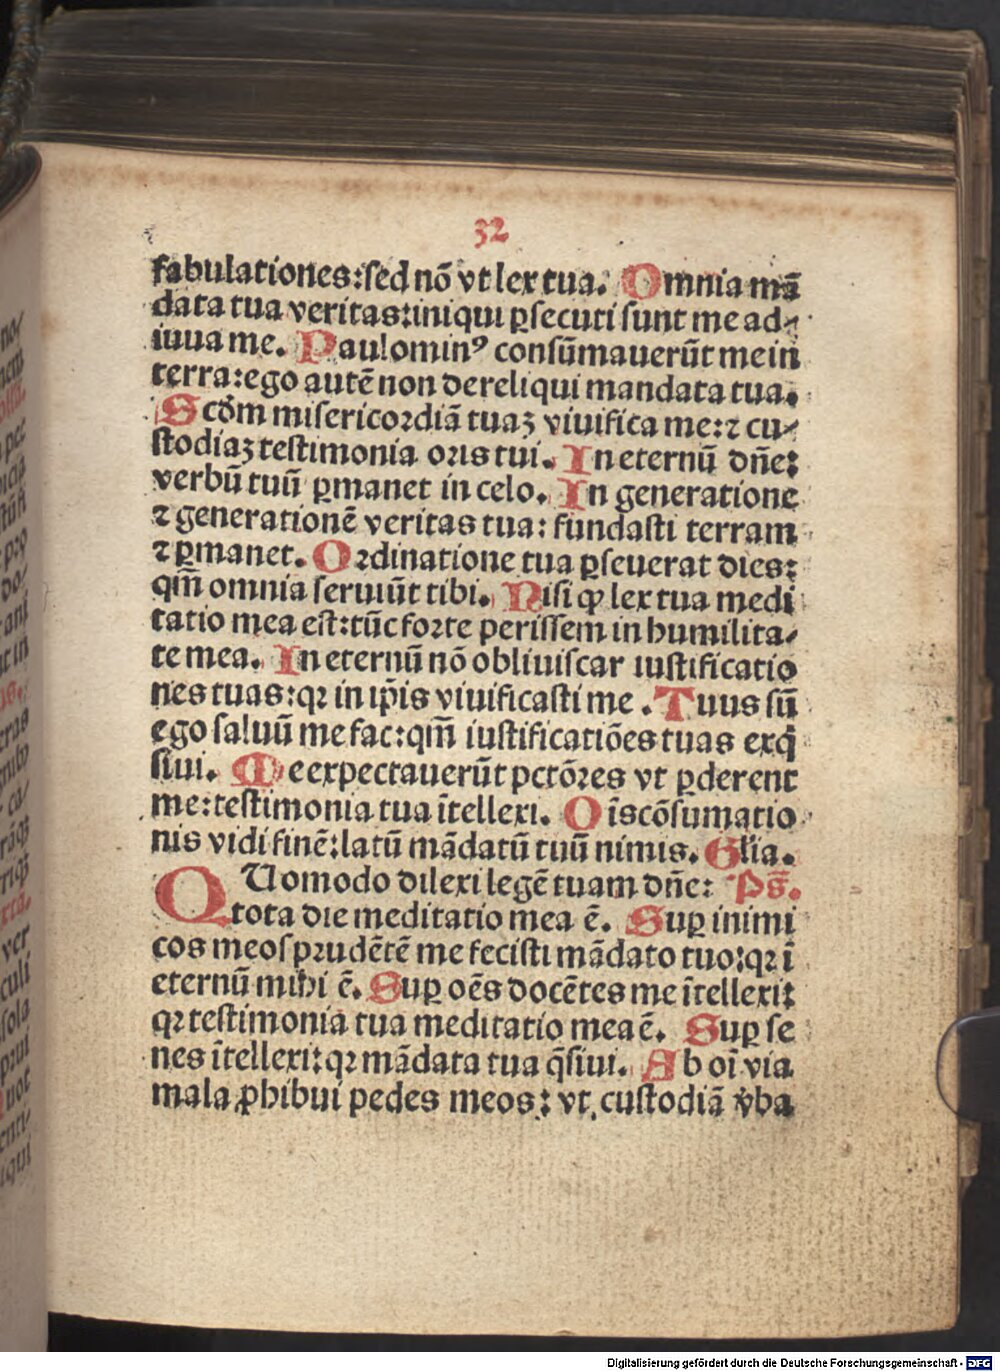 32
fabulationes:sed nō vt lex tua. Omnia mā
data tua veritas:iniqui ꝑsecuti sunt me ad-
iuua me. Paulominꝰ consūmauerūt me in
terra:ego autē non dereliqui mandata tua.
Scd̄m misericordiā tuaꝫ viuifica me:⁊ cu-
stodiaꝫ testimonia oris tui. In eternū dn̄e:
verbū tuū ꝑmanet in celo. In generatione
⁊ generationē veritas tua: fundasti terram
⁊ ꝑmanet. Ordinatione tua ꝑseuerat dies:
qm̄ omnia seruiūt tibi. Nisi ꝙ lex tua medi
tatio mea est:tūc forte perissem in humilita-
te mea. In eternū nō obliuiscar iustificatio
nes tuas:qꝛ in ip̄is viuificasti me. Tuus sū
ego saluū me fac:qm̄ iustificatiōes tuas exq̄
siui. Me expectauerūt pctōres vt ꝑderent
me:testimonia tua ītellexi. Oīs cōsumatio
nis vidi finē:latū mādatū tuū nimis. Glīa.
QUomodo dilexi legē tuam dn̄e: Ps̄.
tota die meditatio mea ē. Suꝑ inimi
cos meos prudētē me fecisti mādato tuo:qꝛ ī
eternū mihi ē. Suꝑ oēs docētes me ītellexi:
qꝛ testimonia tua meditatio mea ē. Suꝑ se
nes ītellexi:qꝛ mādata tua q̄siui. Ab oī via
mala ꝓhibui pedes meos: vt custodiā v̄ba
Digitalisierung gefördert durch die Deutsche Forschungsgemeinschaft - DFG